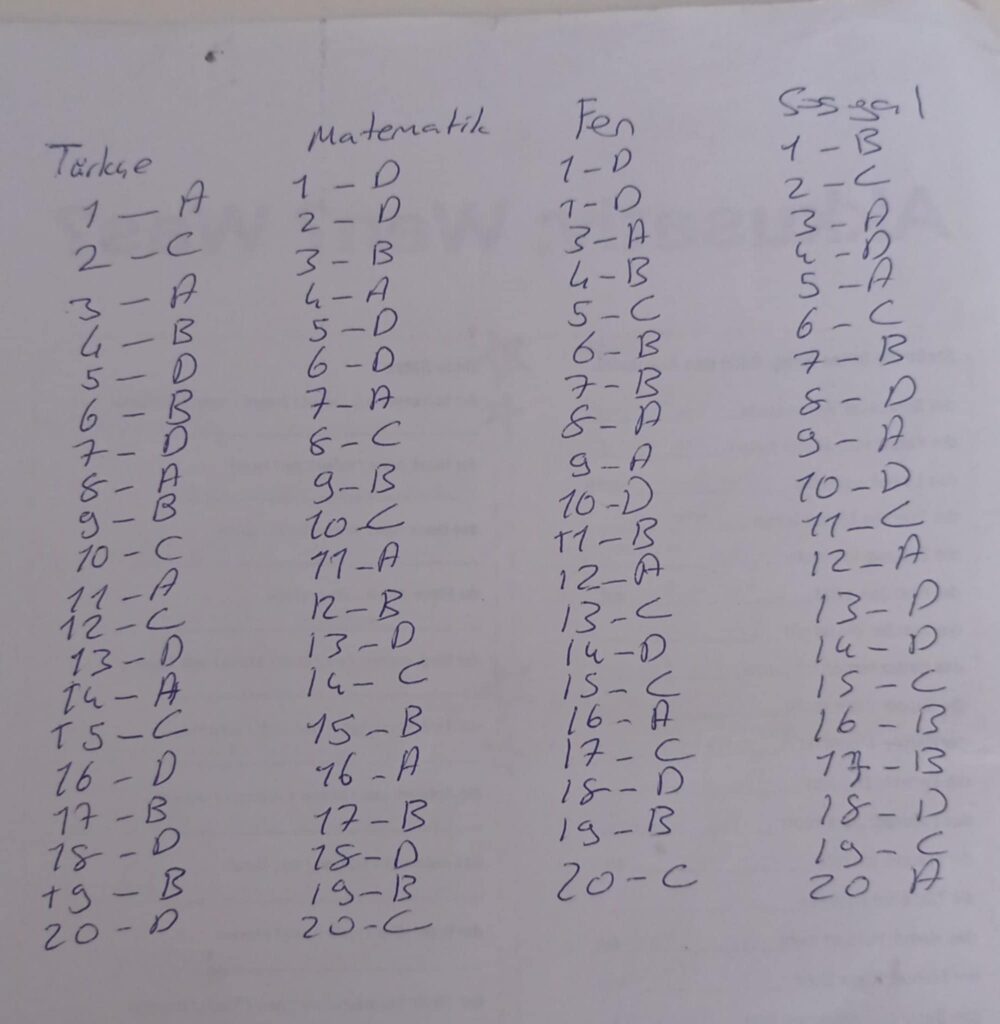 Türkçe
1 - A
2 - C
3 - A
4 - B
5 - D
6 - B
7 - D
8 - A
9 - B
10 - C
11 - A
12 - C
13 - D
14 - A
15 - C
16 - D
17 - B
18 - D
19 - B
20 - D
Matematik
1 - D
2 - D
3 - B
4 - A
5 - D
6 - D
7 - A
8 - C
9 - B
10 - C
11 - A
12 - B
13 - D
14 - C
15 - B
16 - A
17 - B
18 - D
19 - B
20 - C
Fen
1 - D
1 - D
3 - A
4 - B
5 - C
6 - B
7 - B
8 - A
9 - A
10 - D
11 - B
12 - A
13 - C
14 - D
15 - C
16 - A
17 - C
18 - D
19 - B
20 - C
Sosyal
1 - B
2 - C
3 - A
4 - D
5 - A
6 - C
7 - B
8 - D
9 - A
10 - D
11 - C
12 - A
13 - D
14 - D
15 - C
16 - B
17 - B
18 - D
19 - C
20 A